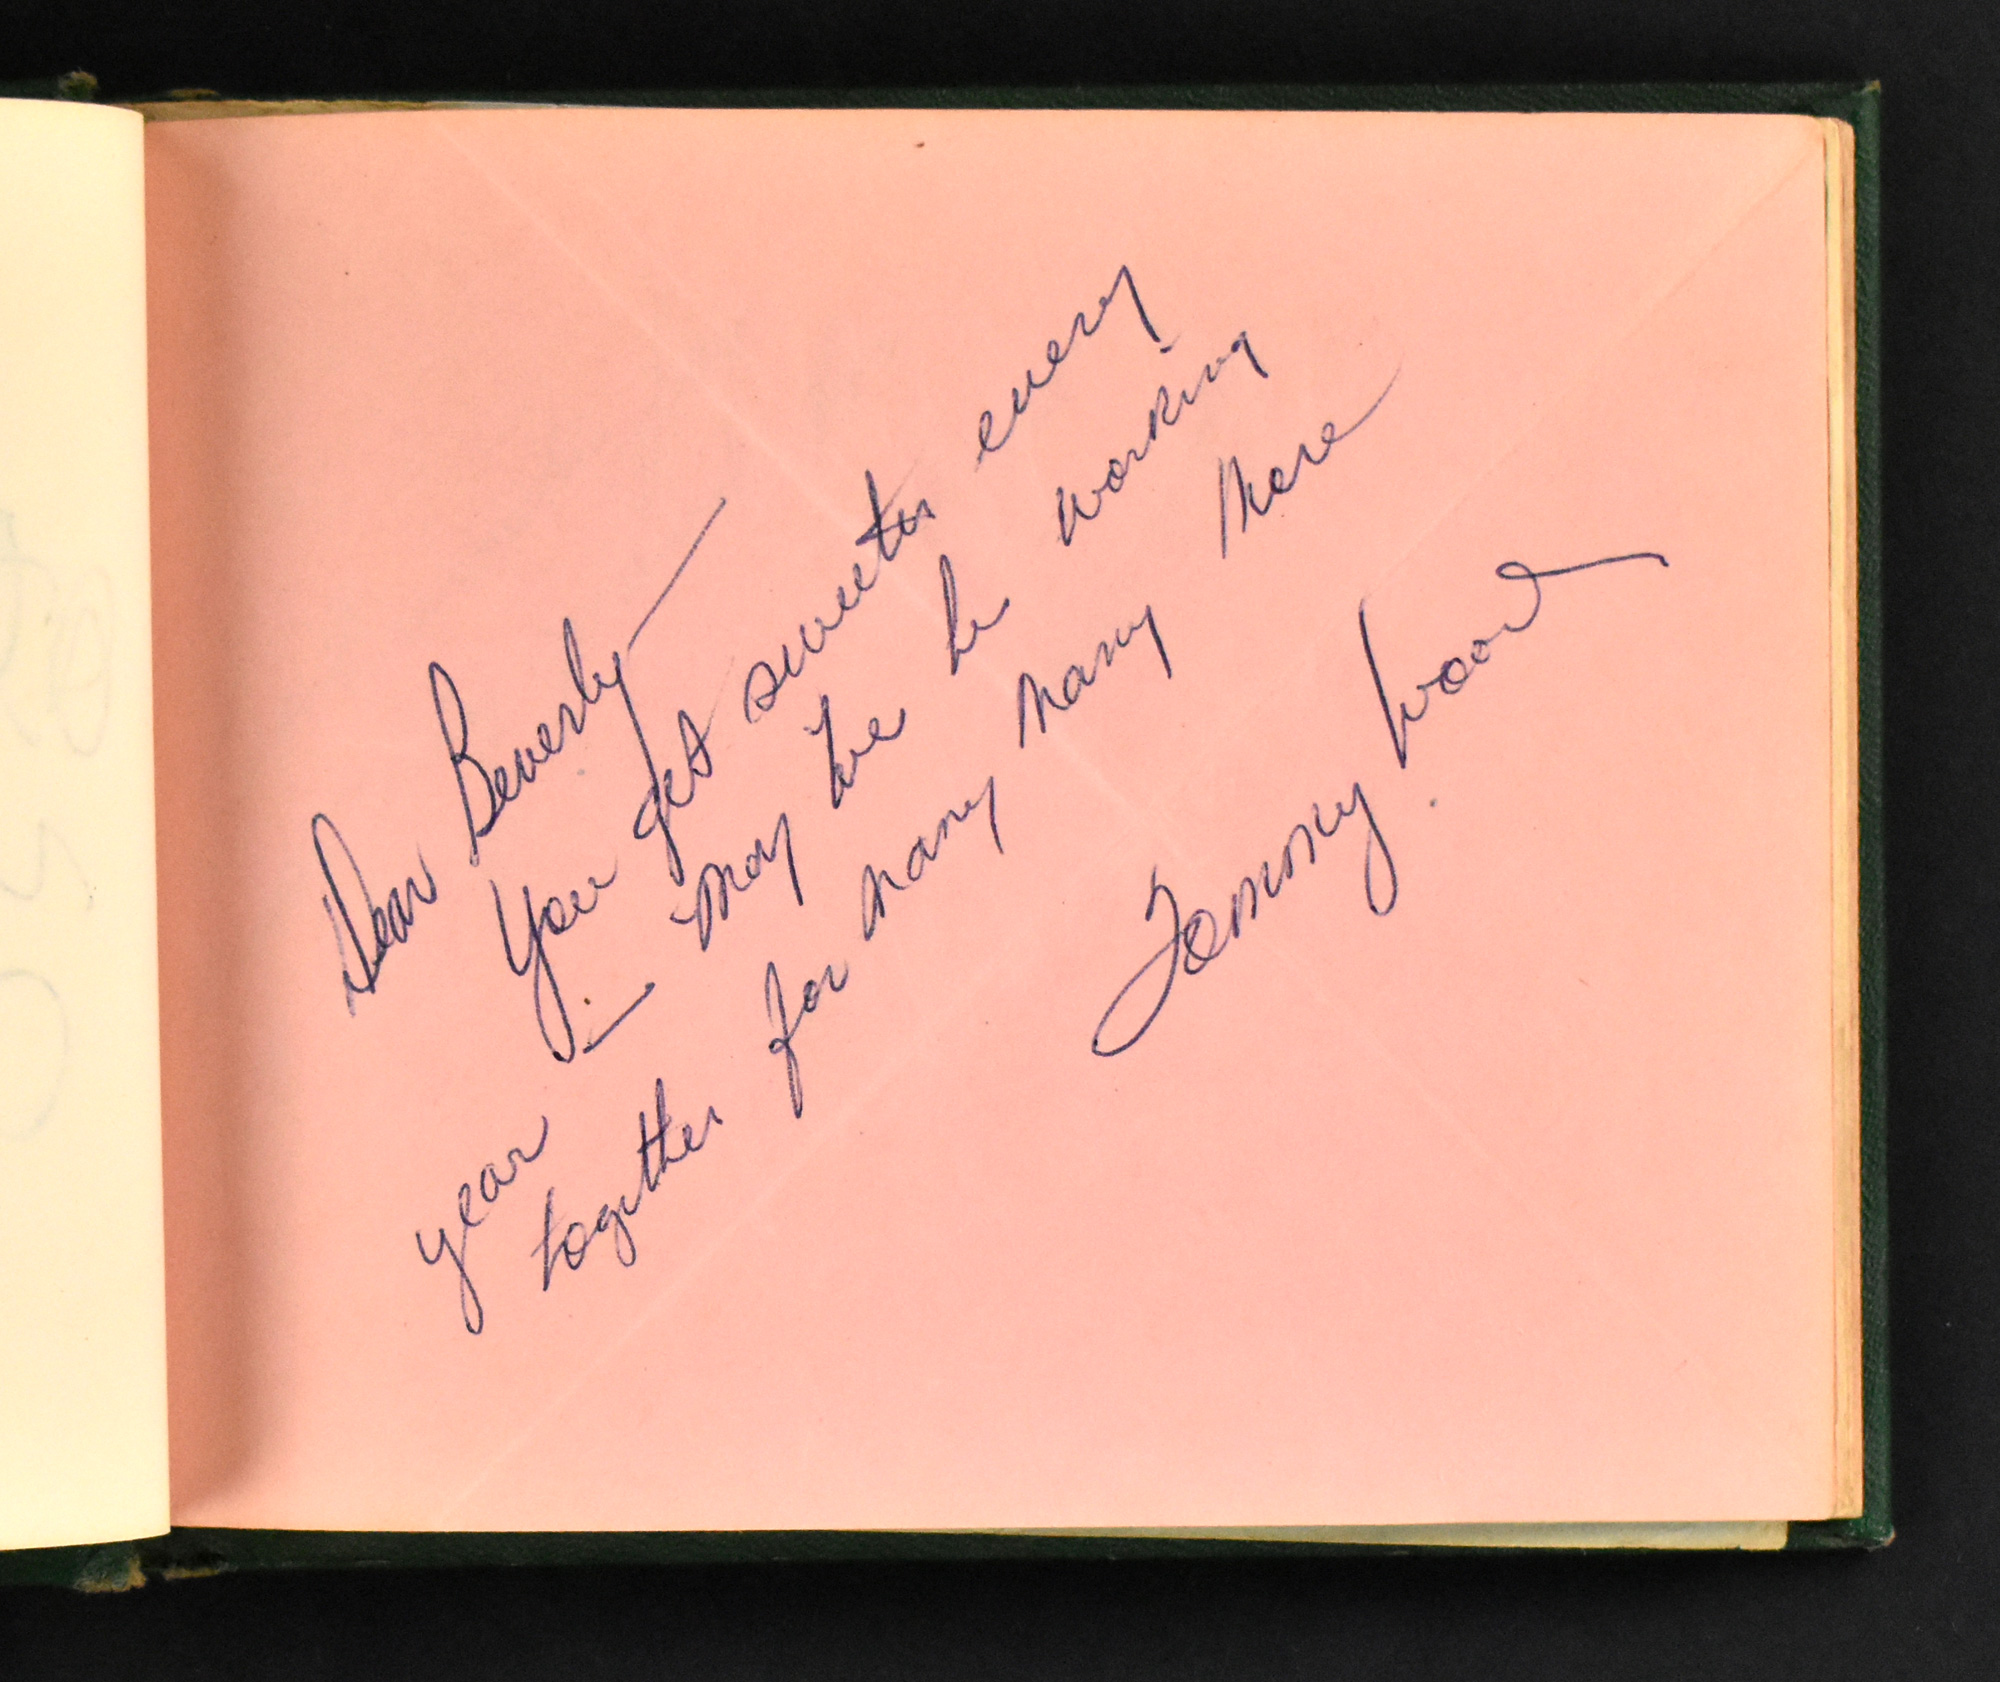 Dear Beverly
You get sweeter every
year - May we be working
together for many many more
Tommy Wood